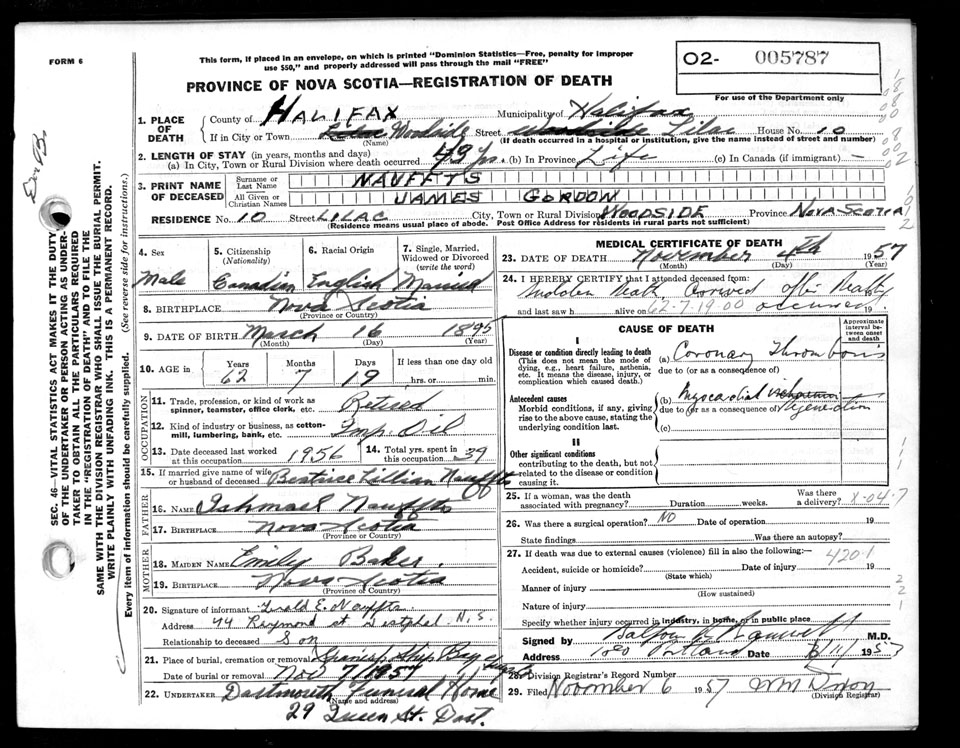 FORM 6
This form, if placed in an envelope, on which is printed "Dominion Statistics—Free, penalty for improper
use $50," and properly addressed will pass through the mail "FREE"
02- 005787
For use of the Department only
PROVINCE OF NOVA SCOTIA—REGISTRATION OF DEATH
1. PLACE OF DEATH
County of HALIFAX Municipality of Halifax
If in City or Town Woodside Street Lilac House No. 10
(Name) (If death occurred in a hospital or institution, give the name instead of street and number)
2. LENGTH OF STAY (in years, months and days)
(a) In City, Town or Rural Division where death occurred 49 yrs. (b) In Province Life (c) In Canada (if immigrant) —
3. PRINT NAME OF DECEASED
Surname or Last Name NAUFFTS
All Given or Christian Names JAMES GORDON
RESIDENCE No. 10 Street LILAC City, Town or Rural Division WOODSIDE Province NOVA SCOTIA
(Residence means usual place of abode. Post Office Address for residents in rural parts not sufficient)
4. Sex
Male
5. Citizenship (Nationality)
Canadian
6. Racial Origin
English
7. Single, Married, Widowed or Divorced (write the word)
Married
8. BIRTHPLACE Nova Scotia
(Province or Country)
9. DATE OF BIRTH March 16 1895
(Month) (Day) (Year)
10. AGE in Years 62 Months 7 Days 19 If less than one day old hrs. or min.
OCCUPATION
11. Trade, profession, or kind of work as spinner, teamster, office clerk, etc. Retired
12. Kind of industry or business, as cotton-mill, lumbering, bank, etc. Imp. Oil
13. Date deceased last worked at this occupation 1956
14. Total yrs. spent in this occupation 39
15. If married give name of wife or husband of deceased Beatrice Lillian Nauffts
FATHER
16. NAME Ishmael Nauffts
17. BIRTHPLACE Nova Scotia
(Province or Country)
MOTHER
18. MAIDEN NAME Emily Baker
19. BIRTHPLACE Nova Scotia
(Province or Country)
20. Signature of informant E. Nauffts
Address 44 Raymond St N.S.
Relationship to deceased Son
21. Place of burial, cremation or removal Spanish Ship Bay
Date of burial or removal Nov 7/1957
22. UNDERTAKER Dartmouth Funeral Home
(Name and address)
29 Queen St. Dart.
MEDICAL CERTIFICATE OF DEATH
23. DATE OF DEATH November 4th 1957
(Month) (Day) (Year)
24. I HEREBY CERTIFY that I attended deceased from:
Sudden Death Arrived after Death
and last saw h alive on occurred 19
62-7-19-00
CAUSE OF DEATH
Approximate interval between onset and death
I
Disease or condition directly leading to death
(This does not mean the mode of dying, e.g., heart failure, asthenia, etc. It means the disease, injury, or complication which caused death.)
(a) Coronary Thrombosis
due to (or as a consequence of)
Antecedent causes
Morbid conditions, if any, giving rise to the above cause, stating the underlying condition last.
(b) Myocardial
due to (or as a consequence of) Degeneration
(c)
II
Other significant conditions
contributing to the death, but not related to the disease or condition causing it.
25. If a woman, was the death associated with pregnancy? Duration weeks. Was there a delivery?
X-04-7
26. Was there a surgical operation? NO Date of operation 19
State findings Was there an autopsy?
27. If death was due to external causes (violence) fill in also the following:—
420.1
Accident, suicide or homicide? Date of injury 19
(State which)
Manner of injury
(How sustained)
Nature of injury
Specify whether injury occurred in industry, in home, or in public place
Signed by M.D.
Address Portland Date
28. Division Registrar's Record Number
29. Filed November 6 1957
(Division Registrar)
SEC. 46—VITAL STATISTICS ACT MAKES IT THE DUTY
OF THE UNDERTAKER OR PERSON ACTING AS UNDER-
TAKER TO OBTAIN ALL THE PARTICULARS REQUIRED
IN THE "REGISTRATION OF DEATH" AND TO FILE THE
SAME WITH THE DIVISION REGISTRAR WHO SHALL ISSUE THE BURIAL PERMIT.
WRITE PLAINLY WITH UNFADING INK. THIS IS A PERMANENT RECORD.
Every item of information should be carefully supplied. (See reverse side for instructions.)